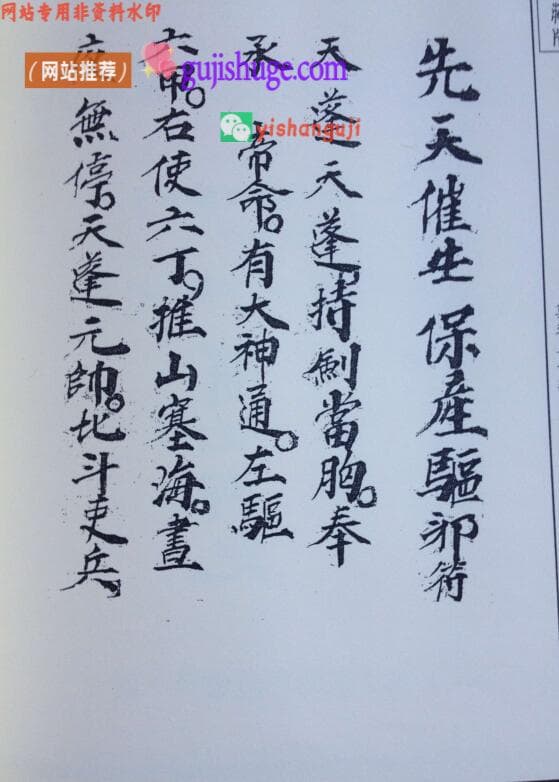 网站专用非资料水印
（网站推荐）
gujishuge.com
yishanguji
先天催生保產驅邪術
天蓬天蓬持劍當胸奉
承帝命。有大神通。左驅
六甲。右使六丁推山塞海。晝
無停。天蓬元帥。北斗吏兵